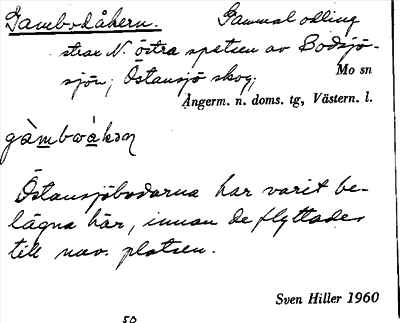 Gambodåkern. Gammal odling
strax N. östra spetsen av Bodsjö-
sjön, Östansjö skog,
Mo sn
Ångerm. n. doms. tg, Västern. l.
Östansjöbodarna har varit be-
lägna här, innan de flyttades
till nuv. platsen.
Sven Hiller 1960
50